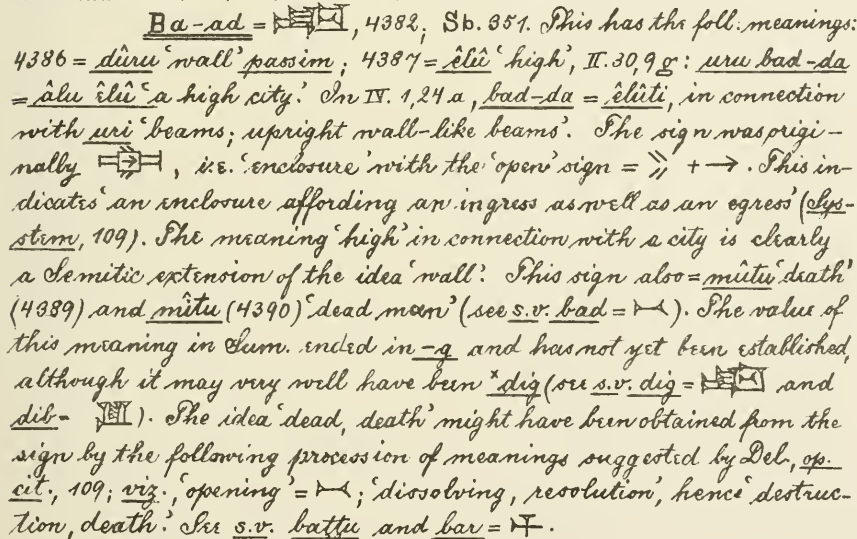 Ba-ad = , 4382; Sb. 351. This has the foll. meanings:
4386 = dûru 'wall' passim; 4387 = êlû 'high', II. 30, 9 g: uru bad-da
= âlu êlû 'a high city.' In IV. 1, 24 a, bad-da = êlûti, in connection
with uri 'beams; upright wall-like beams'. The sign was origi-
nally , i.e. 'enclosure' with the 'open' sign = + →. This in-
dicates 'an enclosure affording an ingress as well as an egress' (Sys-
stem, 109). The meaning 'high' in connection with a city is clearly
a Semitic extension of the idea 'wall.' This sign also = mûtu 'death'
(4389) and mîtu (4390) 'dead man' (see s.v. bad = ). The value of
this meaning in Sum. ended in -g and has not yet been established,
although it may very well have been *dig (see s.v. dig = and
dib- ). The idea 'dead, death' might have been obtained from the
sign by the following procession of meanings suggested by Del., op.
cit., 109; viz., 'opening' = ; 'dissolving, resolution', hence 'destruc-
tion, death.' See s.v. battu and bar = .